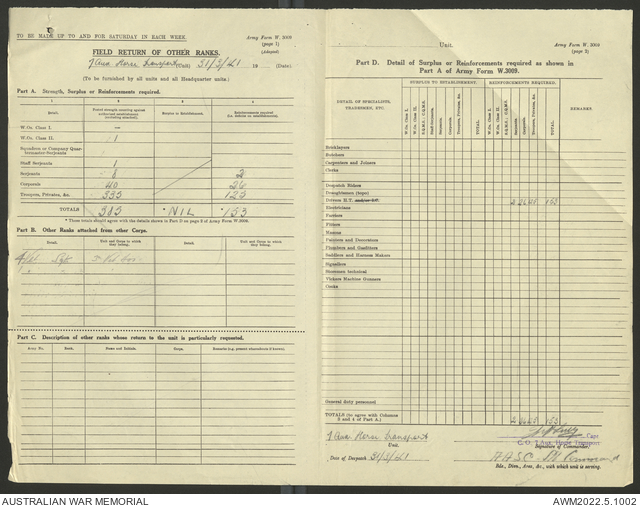 TO BE MADE UP TO AND FOR SATURDAY IN EACH WEEK.
Army Form W. 3009
(page 1)
(Adapted)
FIELD RETURN OF OTHER RANKS.
7 Aus Reser Transport (Unit) 31/3/41 19 (Date)
(To be furnished by all units and all Headquarter units.)
Part A. Strength, Surplus or Reinforcements required.
1 2 3 4
Detail.
Surplus to Establishment.
Reinforcements required (i.e. deficits on establishment).
W.Os. Class I. —
W.Os. Class II. 1
Squadron or Company Quartermaster-Serjeants
Staff Serjeants 1
Serjeants 8 2
Corporals 40 26
Troopers, Privates, &c. 333 125
TOTALS 383 *NIL *153
* These totals should agree with the details shown in Part D on page 2 of Army Form W.3009.
Part B. Other Ranks attached from other Corps.
Detail. Unit and Corps to which they belong. Detail. Unit and Corps to which they belong.
Sgt
Part C. Description of other ranks whose return to the unit is particularly requested.
Army No. Rank. Name and Initials. Corps. Remarks (e.g. present whereabouts if known).
Unit.
Army Form W. 3009
(page 2)
Part D. Detail of Surplus or Reinforcements required as shown in
Part A of Army Form W.3009.
DETAIL OF SPECIALISTS, TRADESMEN, ETC.
SURPLUS TO ESTABLISHMENT. REINFORCEMENTS REQUIRED.
REMARKS.
W.Os. Class I. W.Os. Class II. S.Q.M.S.; C.Q.M.S. Staff-Serjeants Serjeants Corporals Troopers, Privates, &c. TOTAL
W.Os. Class I. W.Os. Class II. S.Q.M.S.; C.Q.M.S. Serjeants Corporals Troopers, Privates, &c. TOTAL
Bricklayers
Butchers
Carpenters and Joiners
Clerks
Despatch Riders
Draughtsmen (topo)
Drivers H.T.
Electricians
Farriers
Fitters
Masons
Painters and Decorators
Plumbers and Gasfitters
Saddlers and Harness Makers
Signallers
Storemen technical
Vickers Machine Gunners
Cooks
General duty personnel
TOTALS (to agree with Columns 3 and 4 of Part A.) 2 26 125 153
7 Aus Reser Transport
Unit.
Capt
Signature of Commander.
Date of Despatch 31/3/41
Bde., Divn., Area, &c., with which unit is serving.
AUSTRALIAN WAR MEMORIAL
AWM2022.5.1002